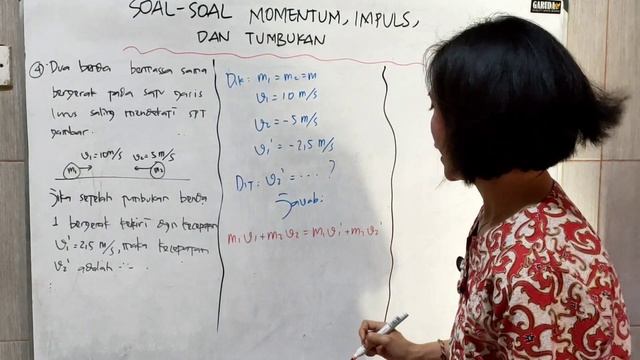 SOAL-SOAL MOMENTUM, IMPULS,
DAN TUMBUKAN
GARUDA
④ Dua benda bermassa sama
bergerak pada satu garis
lurus saling mendekati spt
gambar.
v₁=10m/s v₂=5m/s
m₁ m₂
Jika setelah tumbukan benda
1 bergerak kekiri dgn kecepatan
v₁'=2,5 m/s, maka kecepatan
v₂' adalah ...
Dik: m₁ = m₂ = m
v₁ = 10 m/s
v₂ = -5 m/s
v₁' = -2,5 m/s
Dit: v₂' = .... ?
Jawab:
m₁v₁+m₂v₂ = m₁v₁'+m₂v₂'